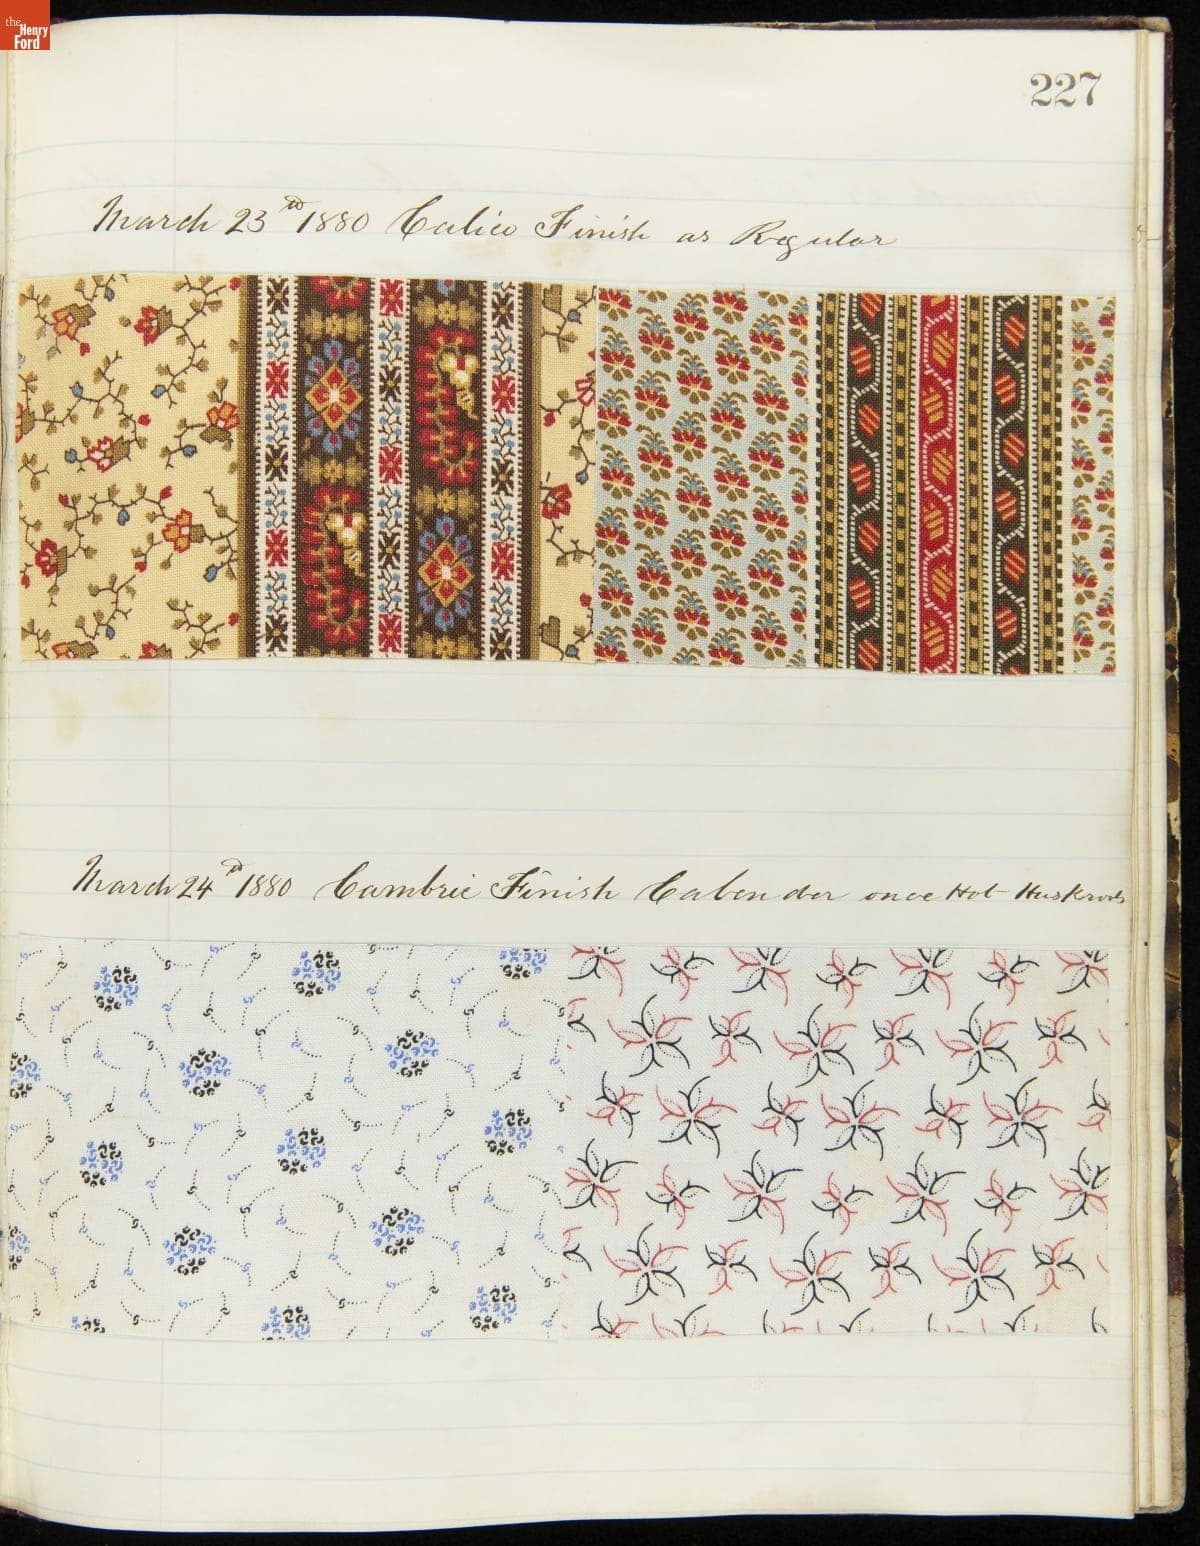 the
Henry
Ford
227
March 23rd 1880 Calico Finish as Regular
March 24th 1880 Cambric Finish Calender once Hot Huskrods